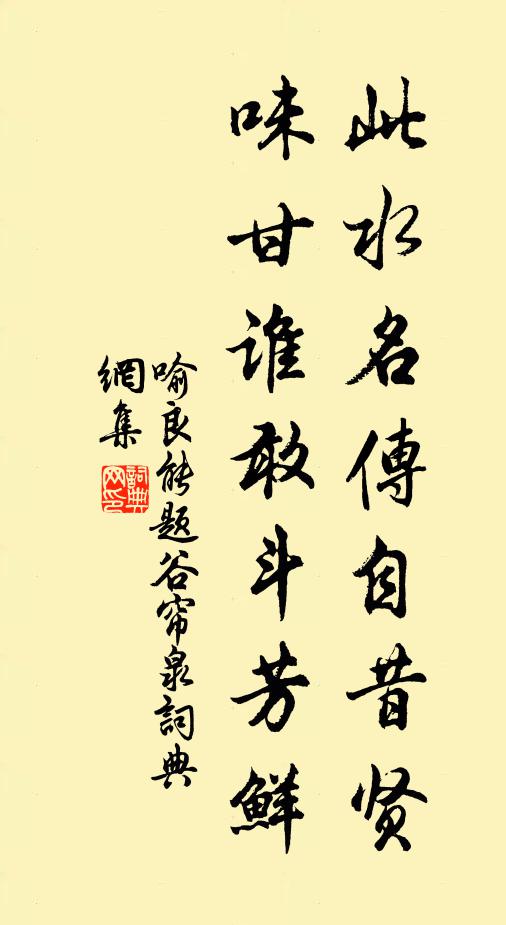 此水名傳自昔贤
味甘谁敢斗芳鮮
喻良能题谷帘泉詞典
網集
詞典
网印